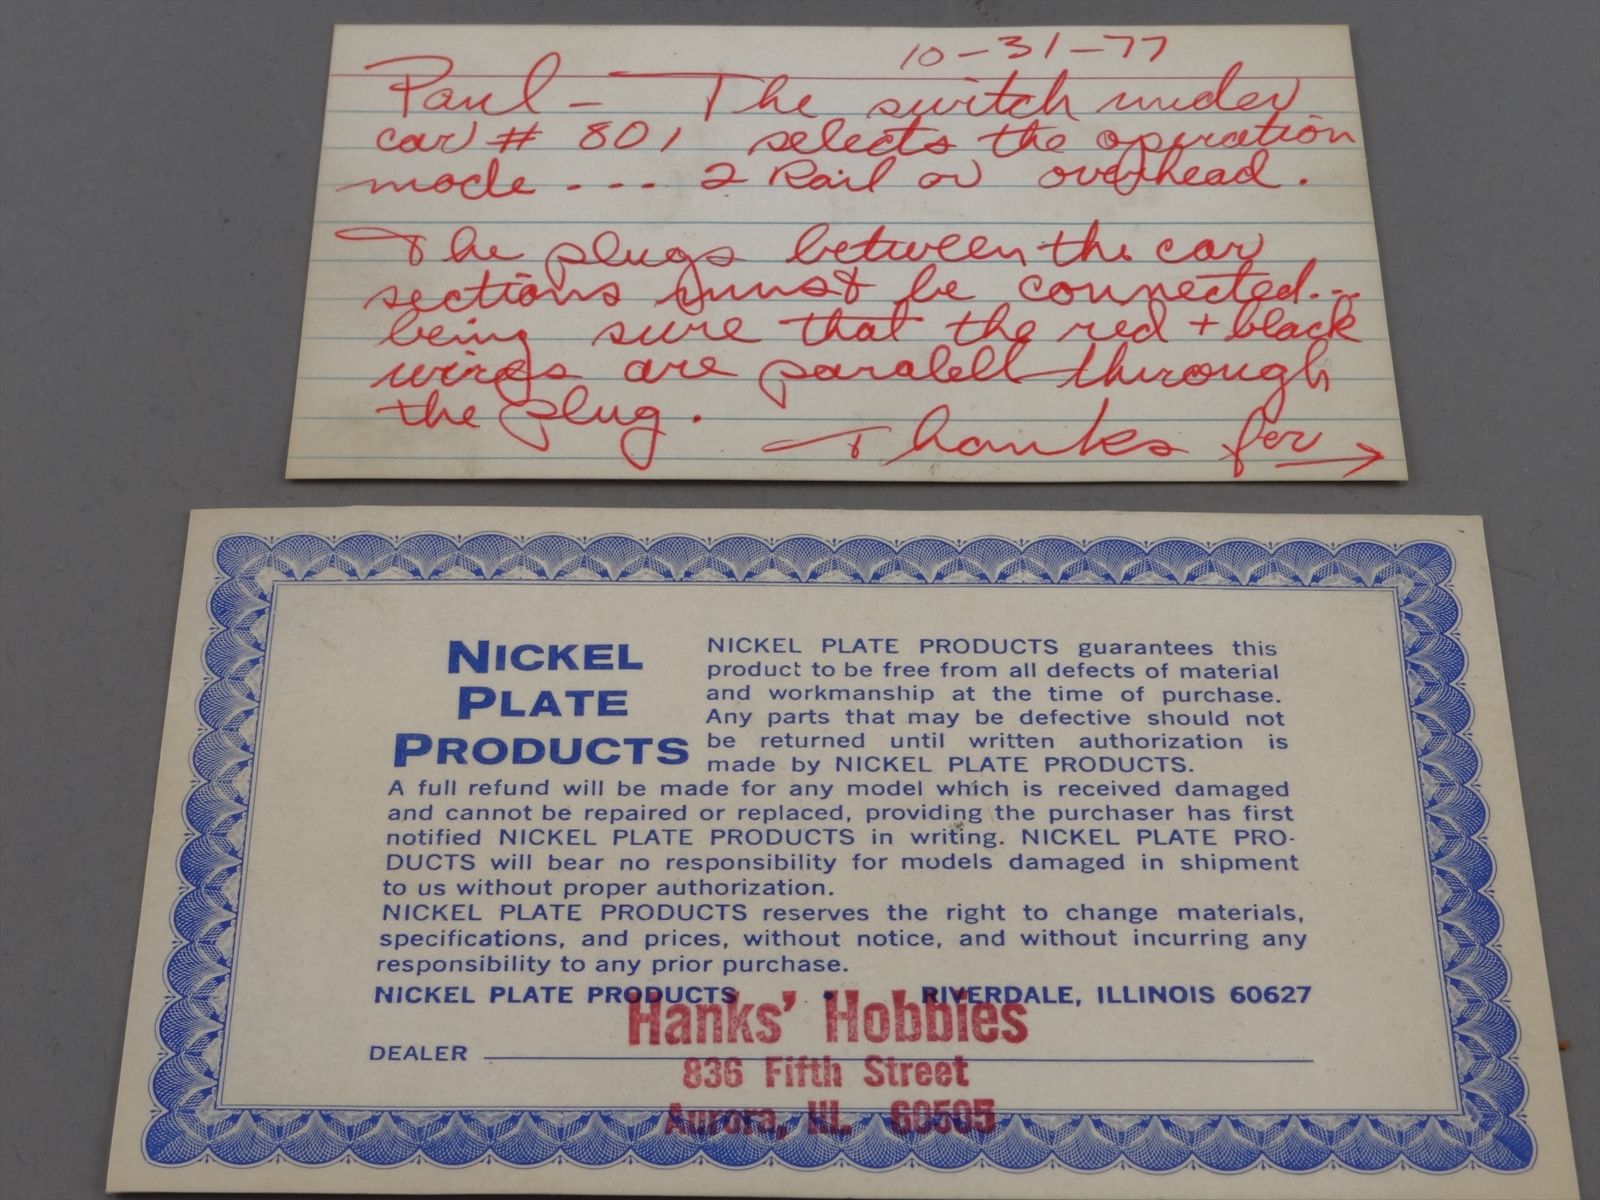 10-31-77
Paul - The switch under
car # 801 selects the operation
mode . . . . 2 Rail or overhead.
The plugs between the car
sections must be connected...
being sure that the red + black
wires are paralell through
the plug. Thanks for →
NICKEL
PLATE
PRODUCTS
NICKEL PLATE PRODUCTS guarantees this
product to be free from all defects of material
and workmanship at the time of purchase.
Any parts that may be defective should not
be returned until written authorization is
made by NICKEL PLATE PRODUCTS.
A full refund will be made for any model which is received damaged
and cannot be repaired or replaced, providing the purchaser has first
notified NICKEL PLATE PRODUCTS in writing. NICKEL PLATE PRO-
DUCTS will bear no responsibility for models damaged in shipment
to us without proper authorization.
NICKEL PLATE PRODUCTS reserves the right to change materials,
specifications, and prices, without notice, and without incurring any
responsibility to any prior purchase.
NICKEL PLATE PRODUCTS • RIVERDALE, ILLINOIS 60627
Hanks' Hobbies
DEALER
836 Fifth Street
Aurora, Ill. 60505